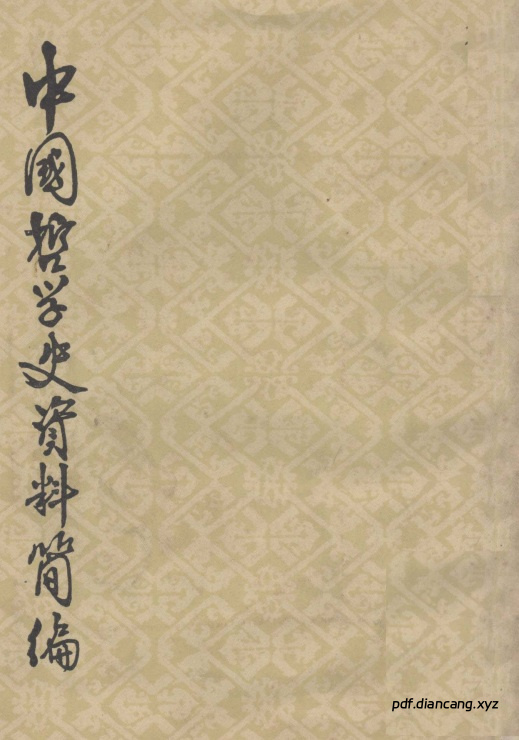 中國哲学史資料简編
pdf.diancang.xyz